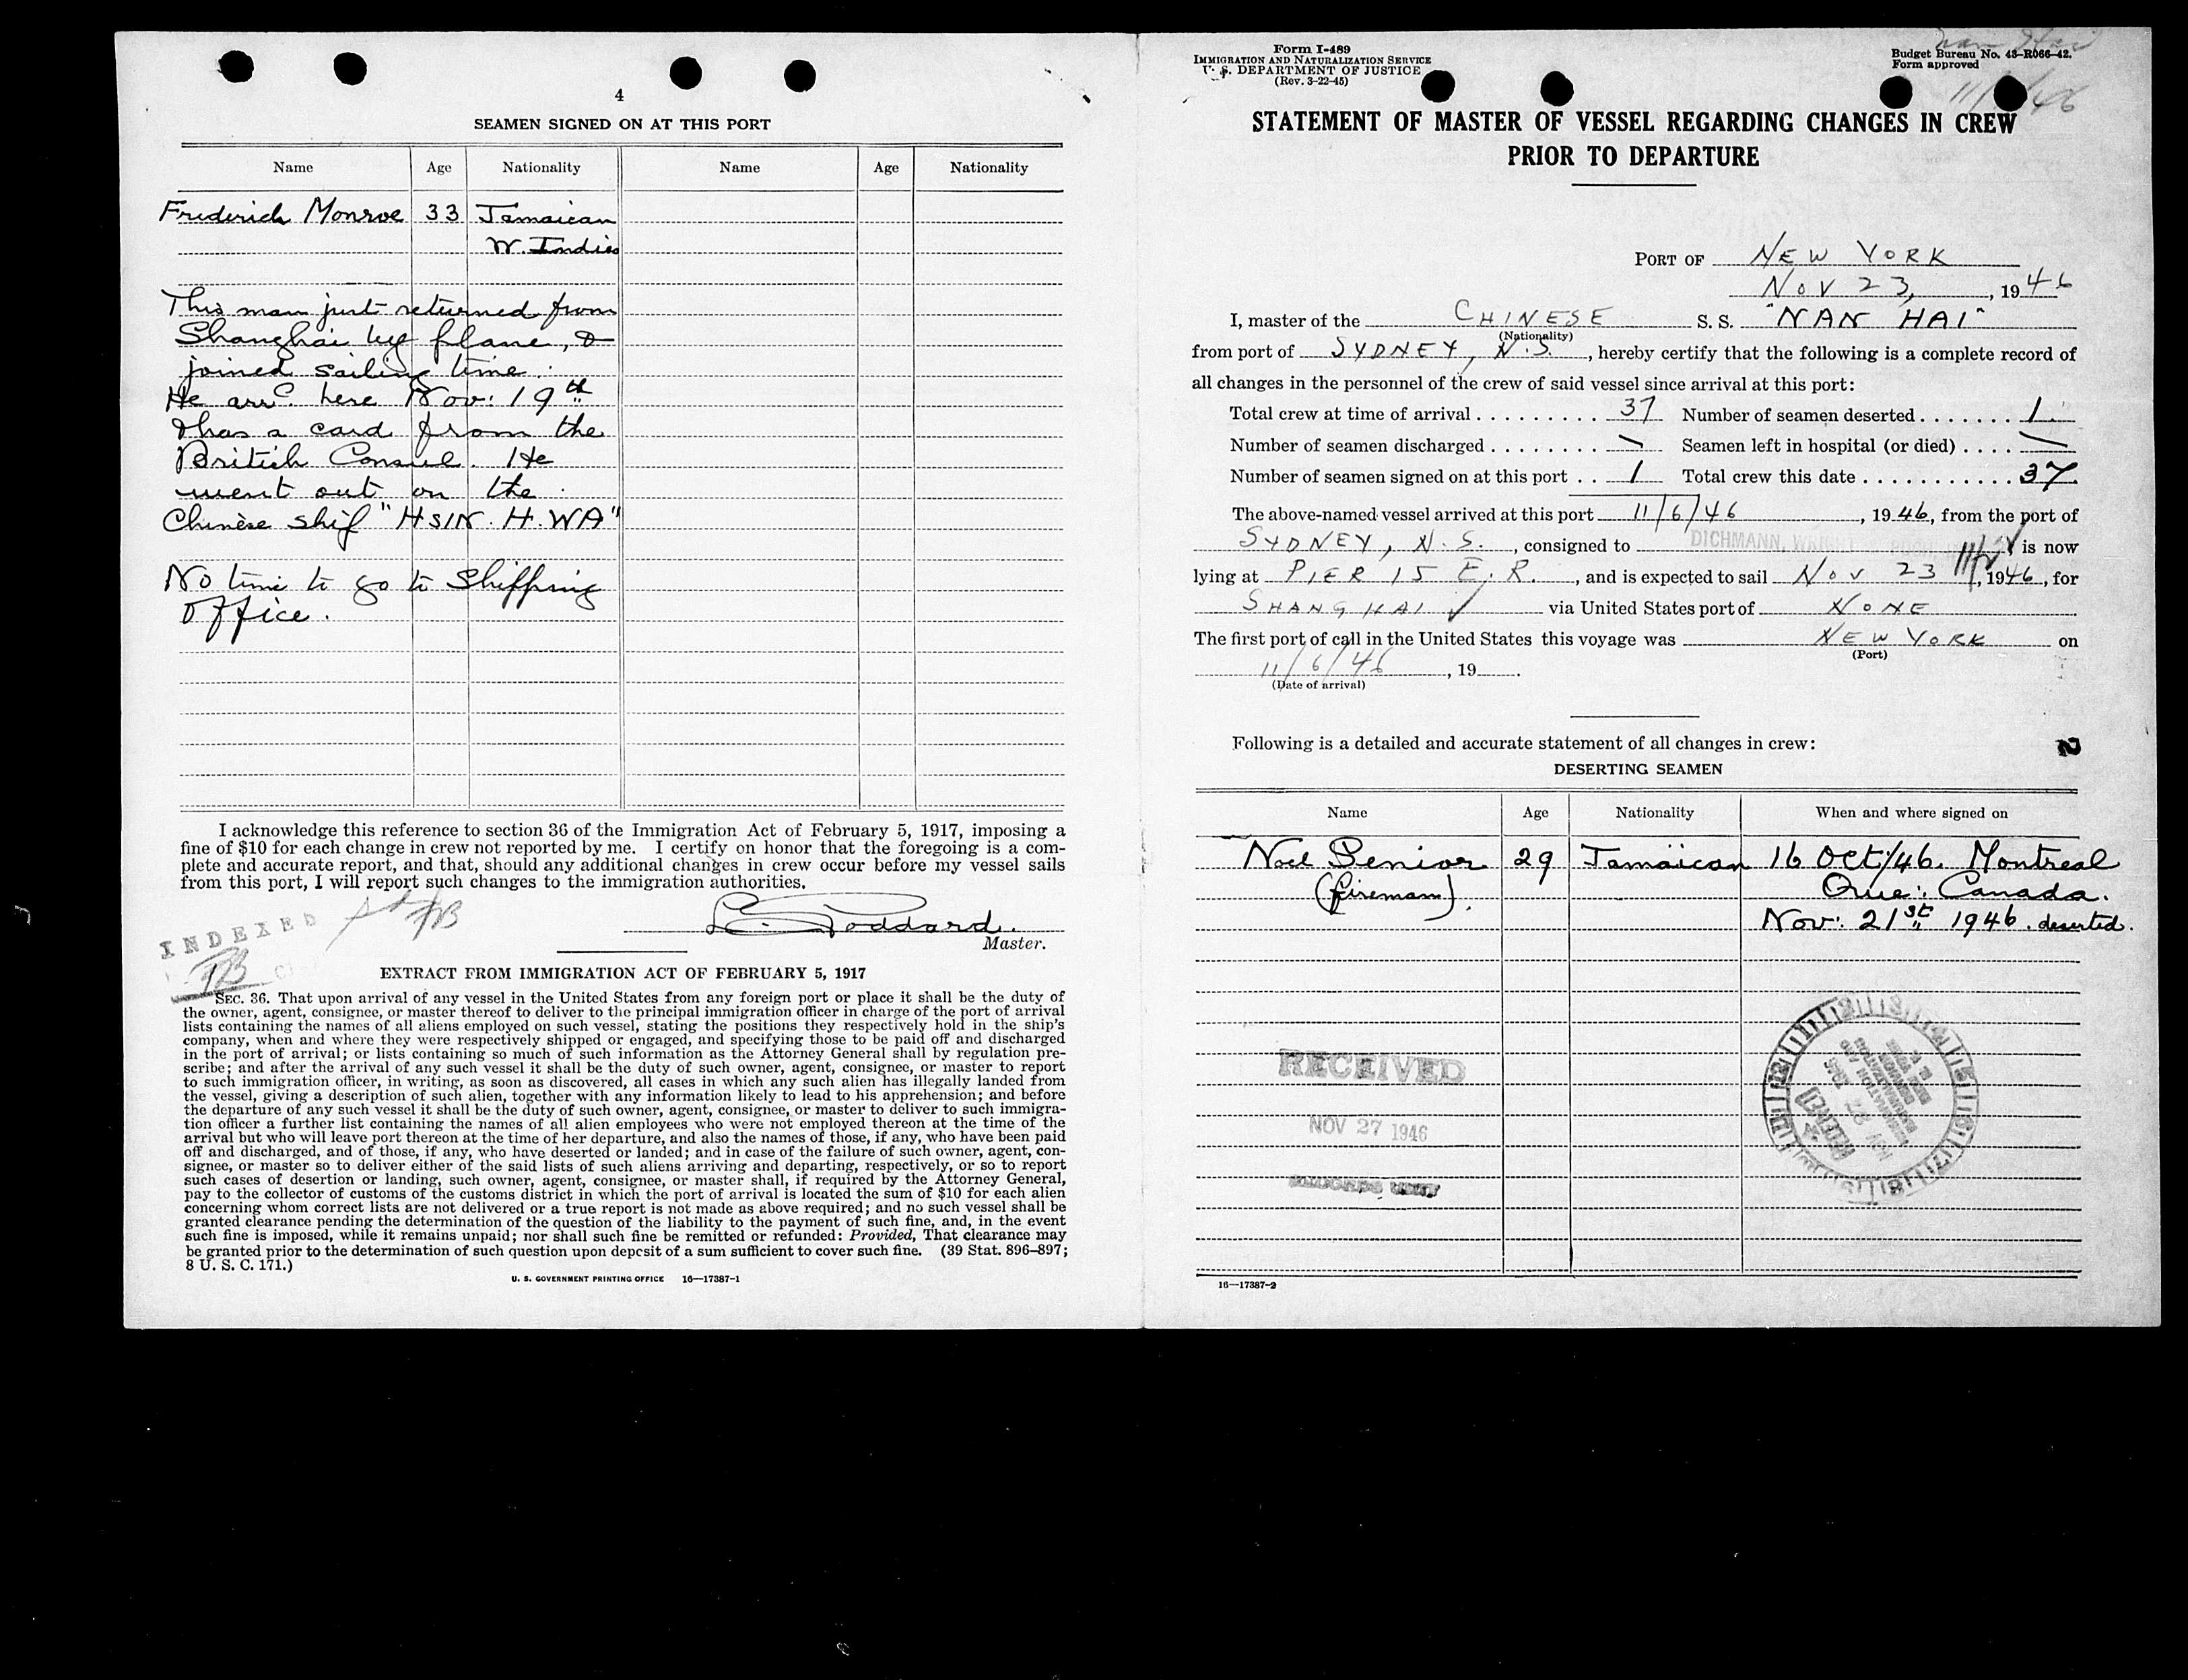 4
SEAMEN SIGNED ON AT THIS PORT
Name Age Nationality Name Age Nationality
Frederick Monroe 33 Jamaican
W. Indies
This man just returned from
Shanghai by plane, &
joined sailing time.
He arrd. here Nov: 19th
& has a card from the
British Consul. He
went out on the
Chinese ship "HSIN. H. WA"
No time to go to Shipping
Office.
I acknowledge this reference to section 36 of the Immigration Act of February 5, 1917, imposing a
fine of $10 for each change in crew not reported by me. I certify on honor that the foregoing is a com-
plete and accurate report, and that, should any additional changes in crew occur before my vessel sails
from this port, I will report such changes to the immigration authorities.
Goddard.
Master.
INDEXED
EXTRACT FROM IMMIGRATION ACT OF FEBRUARY 5, 1917
SEC. 36. That upon arrival of any vessel in the United States from any foreign port or place it shall be the duty of
the owner, agent, consignee, or master thereof to deliver to the principal immigration officer in charge of the port of arrival
lists containing the names of all aliens employed on such vessel, stating the positions they respectively hold in the ship's
company, when and where they were respectively shipped or engaged, and specifying those to be paid off and discharged
in the port of arrival; or lists containing so much of such information as the Attorney General shall by regulation pre-
scribe; and after the arrival of any such vessel it shall be the duty of such owner, agent, consignee, or master to report
to such immigration officer, in writing, as soon as discovered, all cases in which any such alien has illegally landed from
the vessel, giving a description of such alien, together with any information likely to lead to his apprehension; and before
the departure of any such vessel it shall be the duty of such owner, agent, consignee, or master to deliver to such immigra-
tion officer a further list containing the names of all alien employees who were not employed thereon at the time of the
arrival but who will leave port thereon at the time of her departure, and also the names of those, if any, who have been paid
off and discharged, and of those, if any, who have deserted or landed; and in case of the failure of such owner, agent, con-
signee, or master so to deliver either of the said lists of such aliens arriving and departing, respectively, or so to report
such cases of desertion or landing, such owner, agent, consignee, or master shall, if required by the Attorney General,
pay to the collector of customs of the customs district in which the port of arrival is located the sum of $10 for each alien
concerning whom correct lists are not delivered or a true report is not made as above required; and no such vessel shall be
granted clearance pending the determination of the question of the liability to the payment of such fine, and, in the event
such fine is imposed, while it remains unpaid; nor shall such fine be remitted or refunded: Provided, That clearance may
be granted prior to the determination of such question upon deposit of a sum sufficient to cover such fine. (39 Stat. 896–897;
8 U. S. C. 171.)
U. S. GOVERNMENT PRINTING OFFICE 16—17387-1
Form I-489
IMMIGRATION AND NATURALIZATION SERVICE
U. S. DEPARTMENT OF JUSTICE
(Rev. 3-22-45)
Nan Hai
Budget Bureau No. 43-R066-42.
Form approved
STATEMENT OF MASTER OF VESSEL REGARDING CHANGES IN CREW
PRIOR TO DEPARTURE
PORT OF NEW YORK
NOV 23, , 1946
I, master of the CHINESE S. S. "NAN HAI"
(Nationality)
from port of SYDNEY, N.S. , hereby certify that the following is a complete record of
all changes in the personnel of the crew of said vessel since arrival at this port:
Total crew at time of arrival 37 Number of seamen deserted 1.
Number of seamen discharged Seamen left in hospital (or died)
Number of seamen signed on at this port 1 Total crew this date 37
The above-named vessel arrived at this port 11/6/46 , 1946, from the port of
SYDNEY, N.S. , consigned to DICHMANN, WRIGHT is now
lying at PIER 15 E. R. , and is expected to sail NOV 23 , 1946, for
SHANGHAI via United States port of NONE
The first port of call in the United States this voyage was NEW YORK on
(Port)
11/6/46 , 19 .
(Date of arrival)
Following is a detailed and accurate statement of all changes in crew:
2
DESERTING SEAMEN
Name Age Nationality When and where signed on
Noel Senior 29 Jamaican 16 Oct/46. Montreal
(fireman). Que: Canada.
Nov: 21st 1946. deserted.
RECEIVED
NOV 27 1946
RECORDS UNIT
16—17387-2